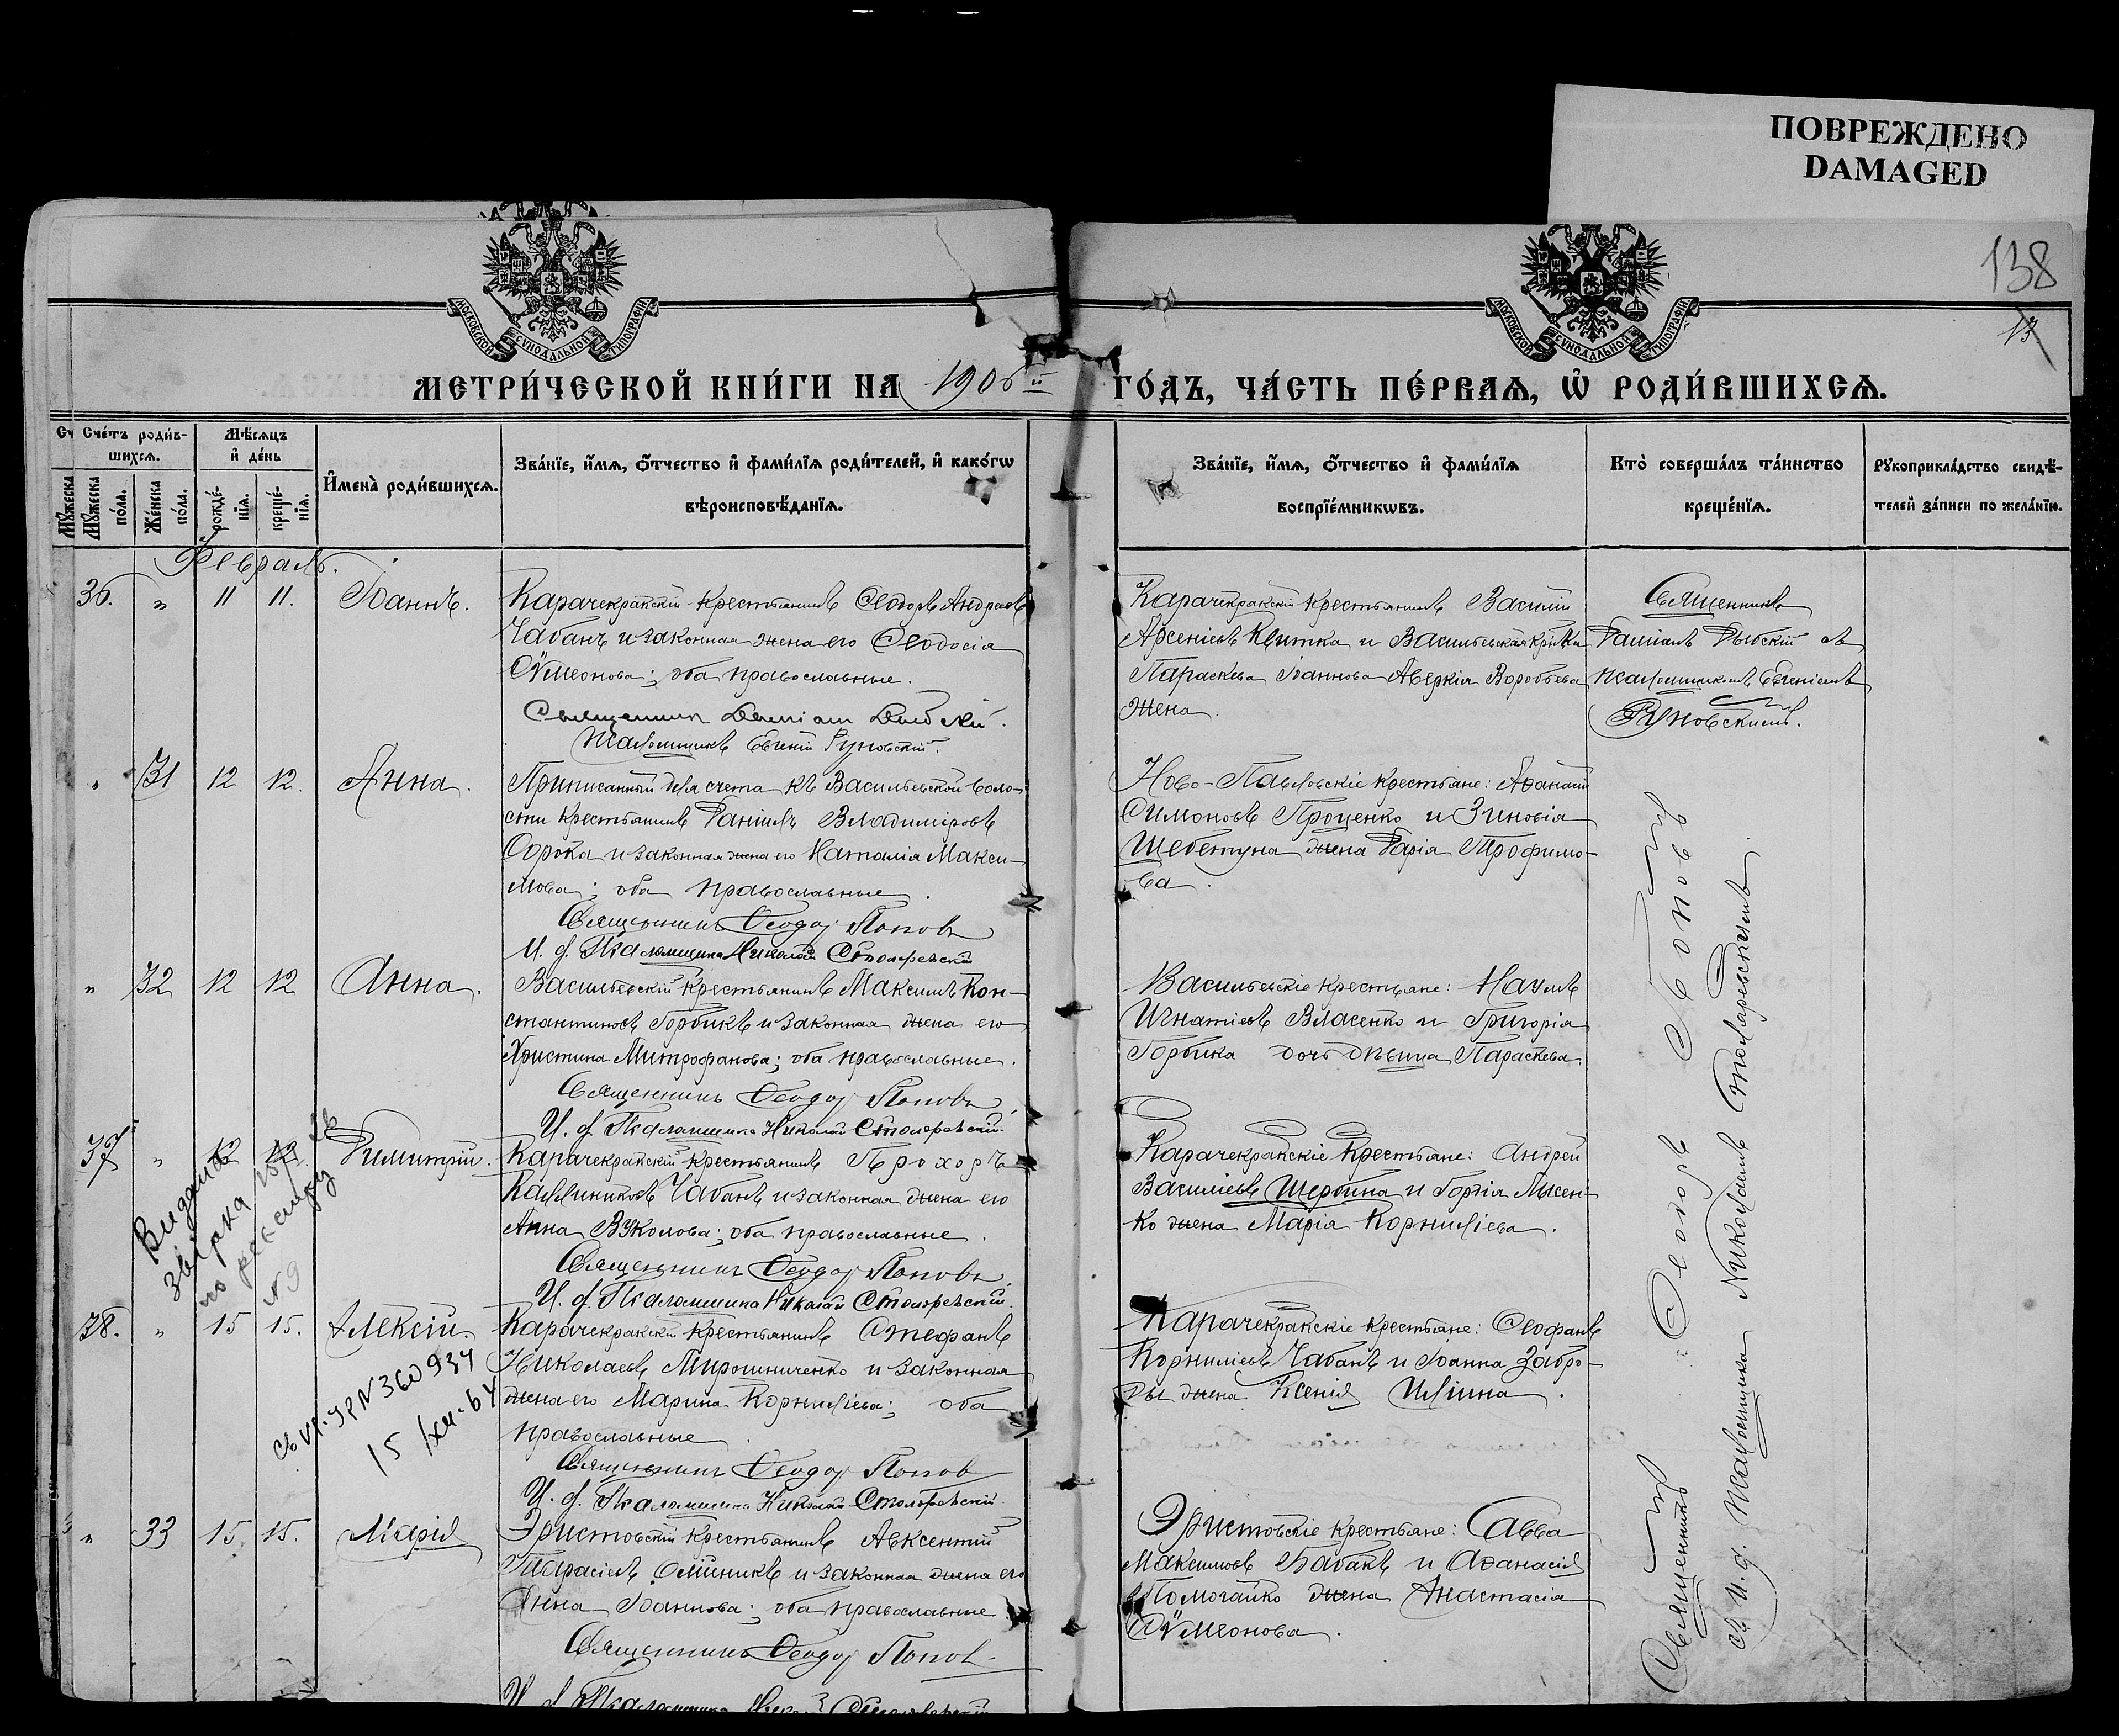 ПОВРЕЖДЕНО
DAMAGED
138
13
МОСКОВСКОЙ СѴНОДАЛЬНОЙ ТИПОГРАФІИ
МОСКОВСКОЙ СѴНОДАЛЬНОЙ ТИПОГРАФІИ
МЕТРИ́ЧЕСКОЙ КНИ́ГИ НА 1906й ГО́ДЪ, ЧА́СТЬ ПЕ́РВАѦ, Ѡ҆ РОДИ́ВШИХСѦ.
Сче́тъ роди́в-
шихсѧ.
Мꙋ́жеска по́ла.
Же́нска по́ла.
Мѣ́сѧцъ
и҆ де́нь
рожде́-
нїѧ.
креще́-
нїѧ.
И҆мена̀ роди́вшихсѧ.
Зва́нїе, и҆́мѧ, ѻ҆́тчество и҆ фами́лїѧ роди́телей, и҆ како́гѡ
вѣроисповѣ́данїѧ.
Зва́нїе, и҆́мѧ, ѻ҆́тчество и҆ фами́лїѧ
воспрїе́мникѡвъ.
Кто̀ соверша́лъ та́инство
креще́нїѧ.
Рꙋкоприкла́дство свидѣ́-
телей за́писи по жела́нїю.
Февраль.
36. " 11 11. Іоаннъ.
Карачекракскій крестьянинъ Ѳеодоръ Андреевъ
Чабанъ и законная жена его Ѳеодосія
Сѵмеонова; оба православные.
Священникъ Даміан
Псаломщикъ Евгеній Руновскій.
Карачекракскій крестьянинъ Василій
Арсеніевъ Квитка и Васильевская кр-нка
Параскева Іоаннова Аверкія Воробьева
жена.
Священникъ
Даміанъ съ
псаломщикомъ Евгеніемъ
Руновскимъ.
" 31 12 12. Анна.
Приписанный для счета къ Васильевской воло-
сти крестьянинъ Даніилъ Владиміровъ
Сорока и законная жена его Наталія Макси-
мова; оба православные.
Священникъ Ѳеодор Поповъ
И. д. Псаломщика Николай Столяревскій
Ново-Павловскіе крестьяне: Аѳанасій
Симоновъ Проценко и Зиновія
Шебетуна жена Дарія Трофимо-
ва.
" 32 12 12 Анна.
Васильевскій крестьянинъ Максимъ Кон-
стантиновъ Горбикъ и законная жена его
Христина Митрофанова; оба православные.
Священникъ Ѳеодор Поповъ
И. д. Псаломщика Николай Столяревскій.
Васильевскіе крестьяне: Наумъ
Игнатіевъ Власенко и Григорія
Горбика дочь дѣвица Параскева.
37 " 12 12. Димитрій.
Карачекракскій крестьянинъ Прохоръ
Каллиниковъ Чабанъ и законная жена его
Анна Вуколова; оба православные.
Священникъ Ѳеодор Поповъ
И. д. Псаломщика Николай Столяревскій.
Карачекракскіе крестьяне: Андрей
Василіевъ Щербина и Гордія Лысен-
ко жена Марія Корниліева.
Видана
38. " 15 15. Алексій.
Карачекракскій крестьянинъ Стефанъ
Николаевъ Мирошниченко и законная
жена его Марина Корниліева; оба
православные.
Священникъ Ѳеодор Попов
И. д. Псаломщика Николай Столяревскій.
Карачекракскіе крестьяне: Ѳеофанъ
Корниліевъ Чабанъ и Іоанна Забро-
ды жена Ксенія Иліина.
N 360934
15/XII-64
" 33 15. 15. Марія
Эристовскій крестьянинъ Авксентій
Тарасіевъ Олійникъ и законная жена его
Анна Іоаннова; оба православные
Священникъ Ѳеодор Попов
И. д. Псаломщика Николай Столяревскій
Эристовскіе крестьяне: Савва
Максимовъ Бабакъ и Аѳанасія
Помогайко жена Анастасія
Сѵмеонова.
Священникъ Ѳеодоръ Поповъ
съ И. д. Псаломщика Николаемъ Столяревскимъ.